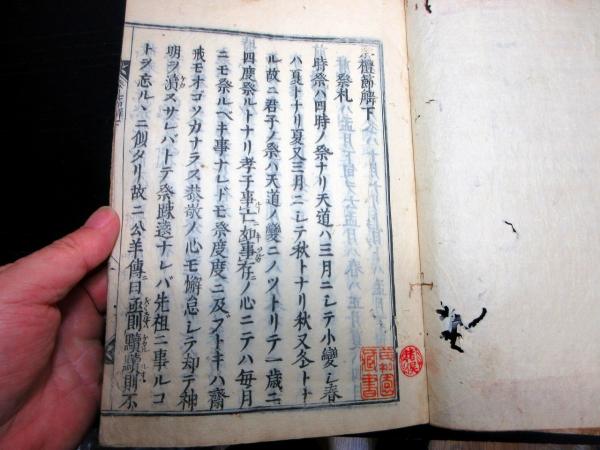 禮節解下
祭礼
時祭ハ四時ノ祭ナリ天道ハ三月ニシテ小變シ春
ハ夏トナリ夏又三月ニシテ秋トナリ秋又冬トナ
ル故ニ君子ノ祭ハ天道ノ變ニノットリテ一歳ニ
四度祭ルトナリ孝子事亡如事存ノ心ニテハ毎月
ニモ祭ルベキ事ナレドモ祭度度ニ及ブトキハ齋
戒モオコソカナラズ恭敬ノ心モ懈怠シテ却テ神
明ヲ瀆スサレバトテ祭疎遠ナレバ先祖ニ事ルコ
トヲ忘ルヽニ似タリ故ニ公羊傳曰亟則黷黷則不